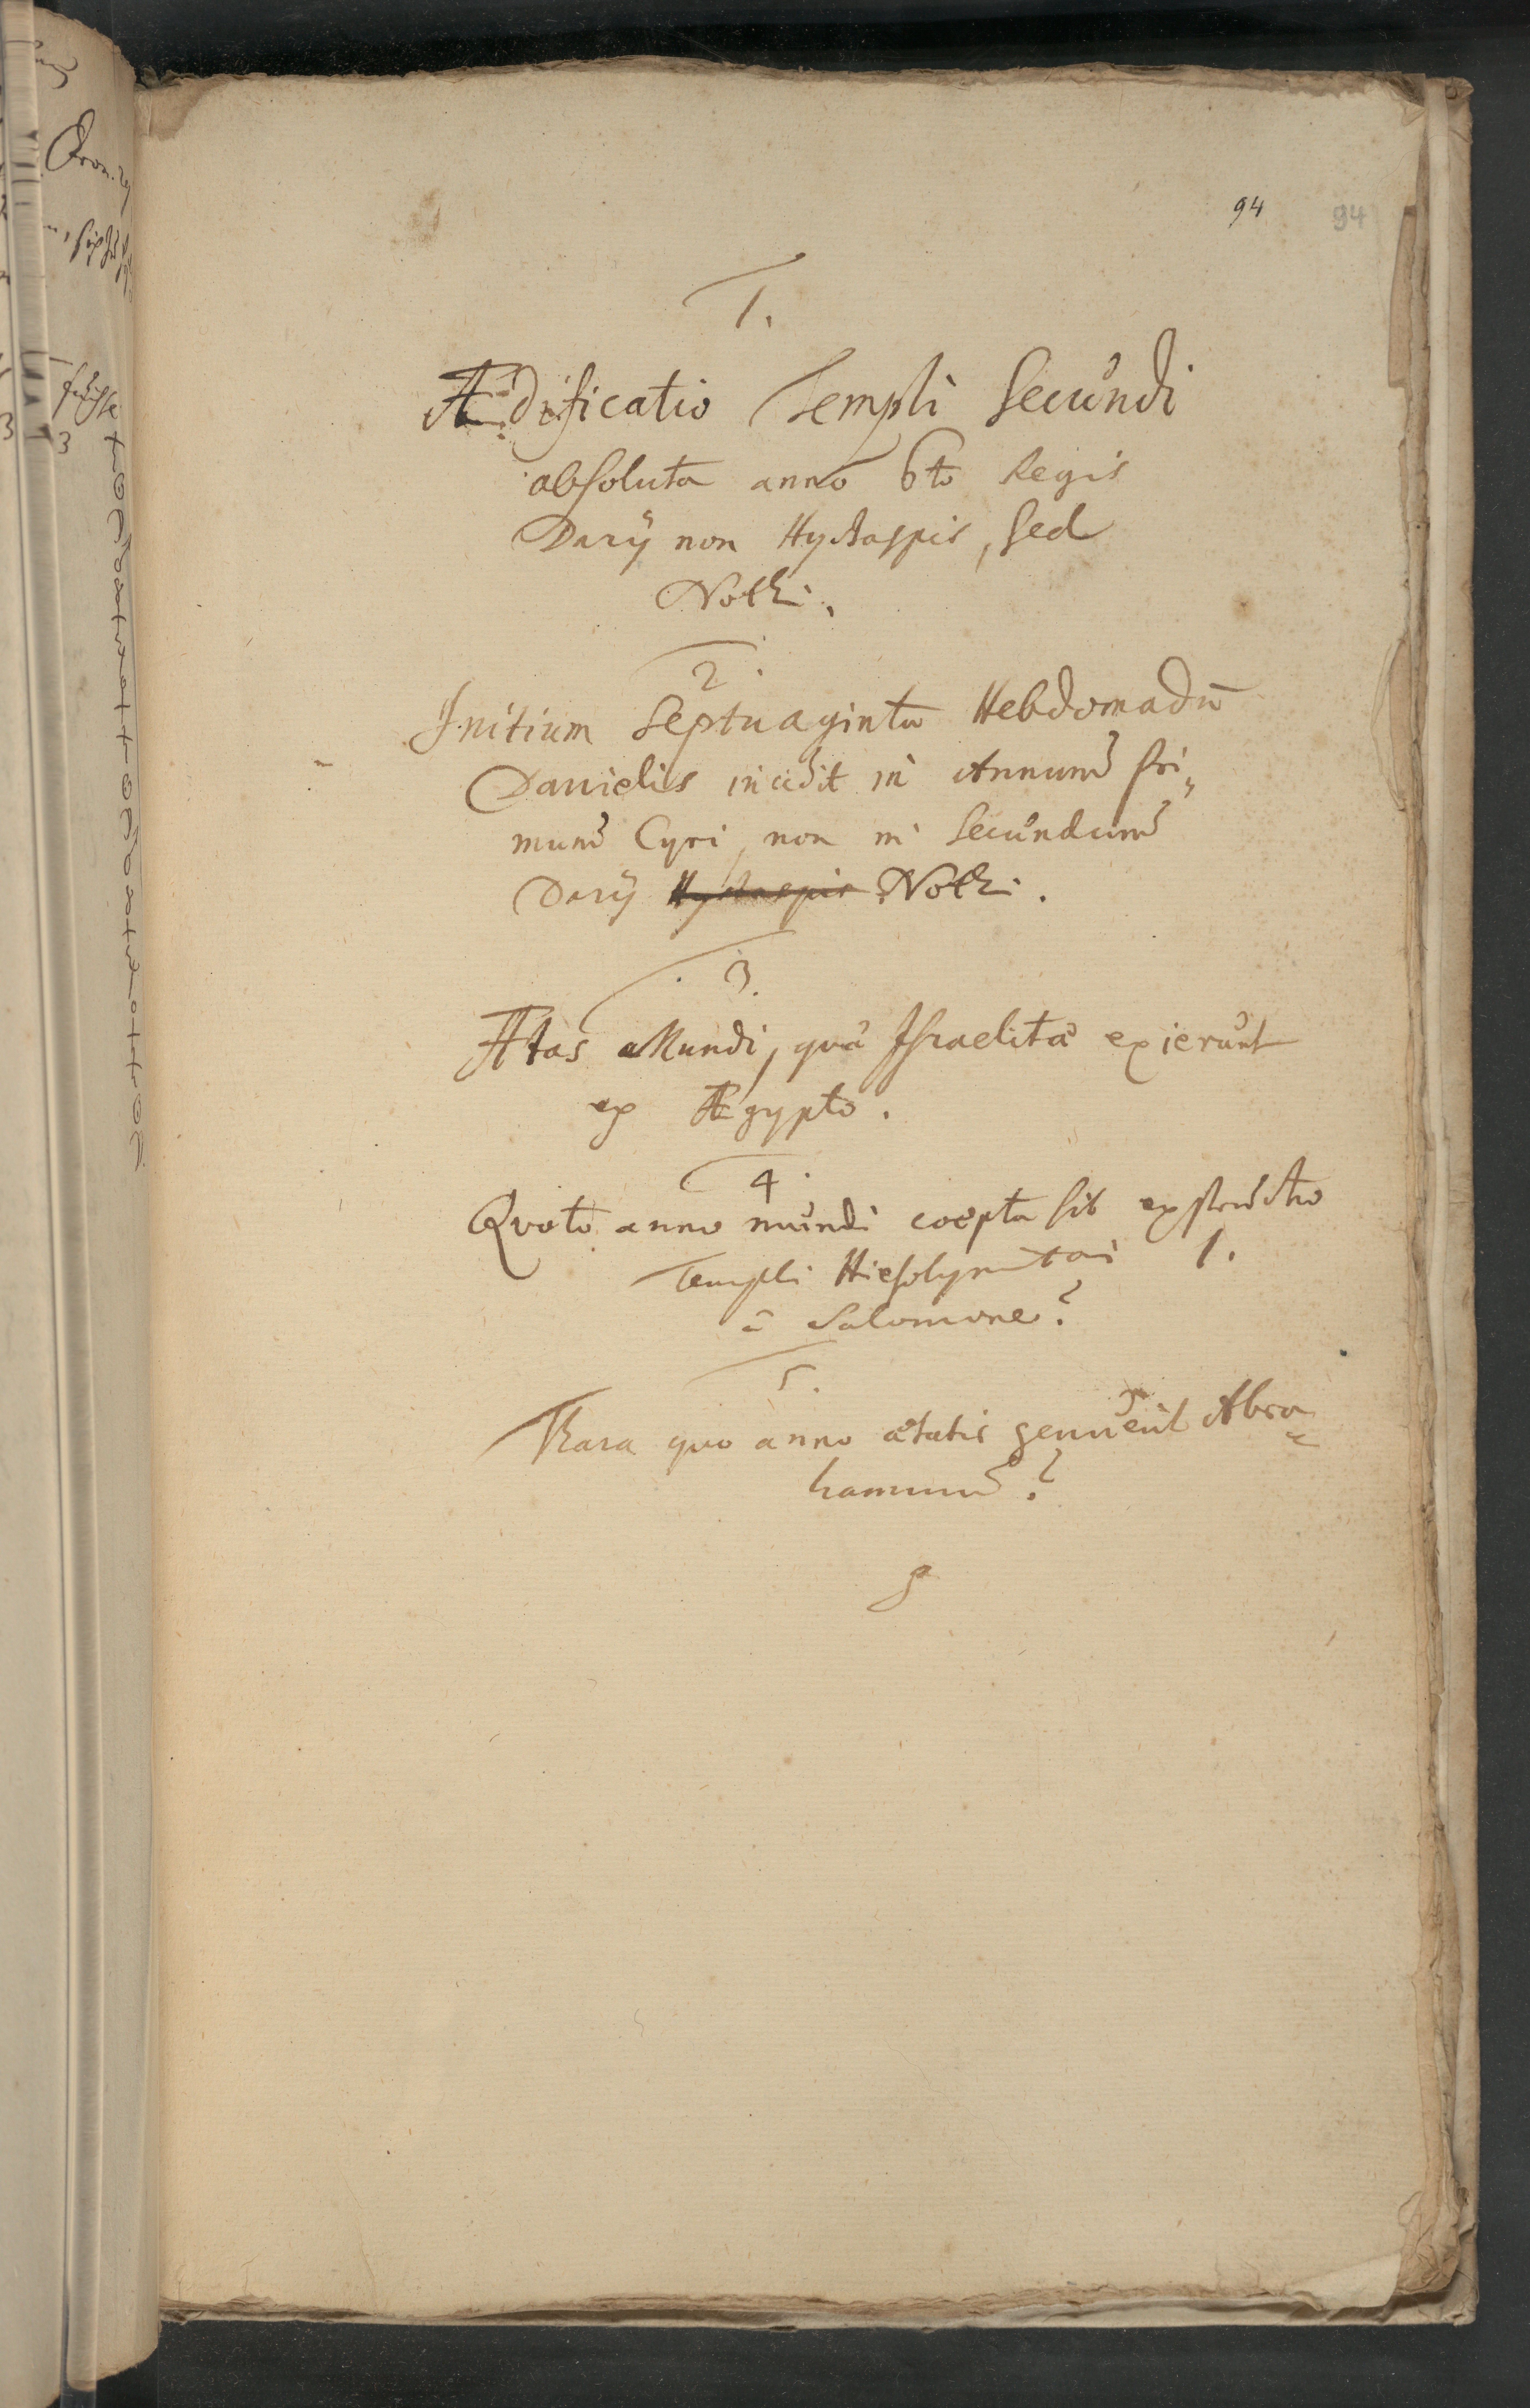 94 94
1.
Ædificatio Templi Secundi
absoluta anno 6to Regis
Darij non Hystaspis, sed
Nothi.
2.
Initium Septuaginta Hebdomadū
Danielis incidit in Annum Pri„
mum Cyri, non in Secundum
Darij Hystaspis Nothi.
3.
Ætas Mundi, quâ Israelitæ exierunt
ex Ægypto.
4.
Quoto anno mundi coepta sit exstructio
Templi Hiesolymitani 1.
à Salomone?
5.
Thara quo anno ætatis genuerit Abra
hamum?